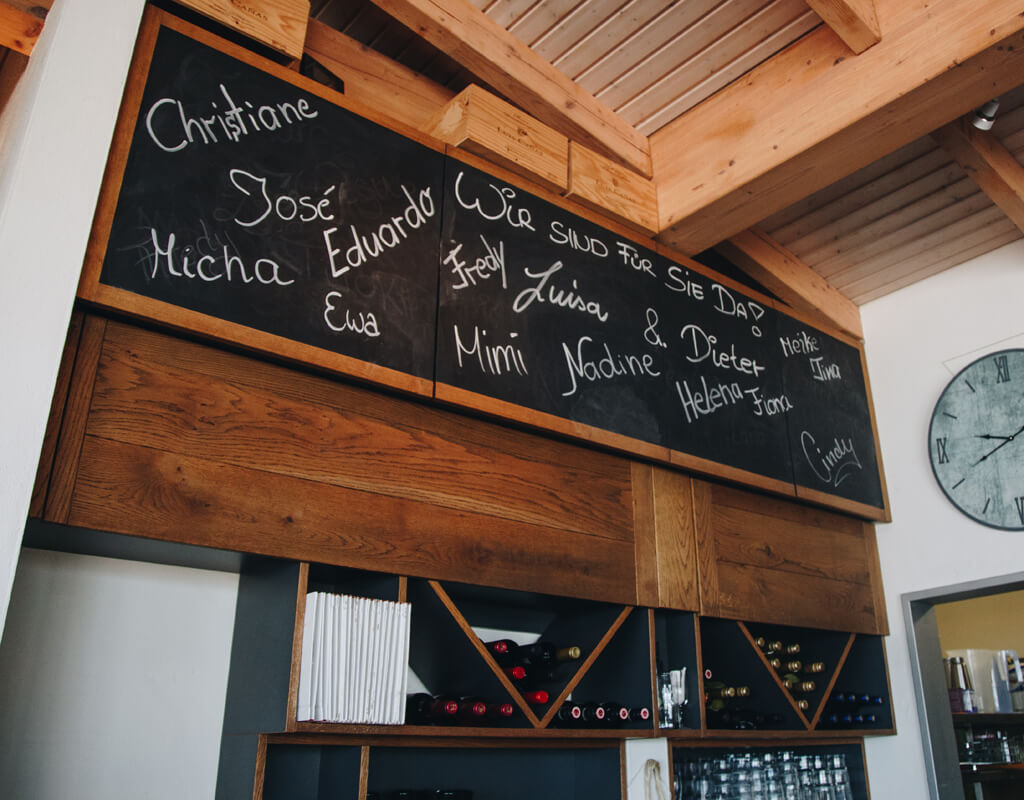 Christiane
José
Eduardo
Micha
Ewa
Wir sind für Sie da!
Fredy
Luisa
& Dieter
Mimi
Nadine
Helena
Fiona
Meike
Tina
Cindy
XII
IX